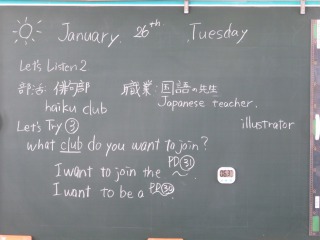 January. 26th. Tuesday
Let's Listen 2
部活:俳句部 職業:国語の先生
haiku club Japanese teacher.
Let's Try ③ illustrator
what club do you want to join?
PD㉛
I want to join the ~
I want to be a PD㉚